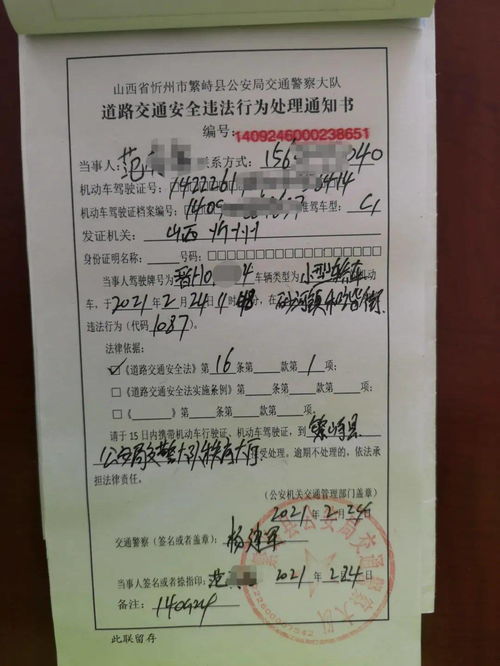 山西省忻州市繁峙县公安局交通警察大队
道路交通安全违法行为处理通知书
编号:1409246000238651
当事人:范 联系方式:156 040
机动车驾驶证号:1422261 6414
机动车驾驶证档案编号:1409 准驾车型:C1
发证机关:山西忻州
身份证明名称: 号码:□□□□□□□□□□□□□□□□□□
当事人驾驶牌号为晋H0 4车辆类型为小型轿车机动
车,于2021年2月24日 时 分,在砂河镇
违法行为(代码1087)
法律依据:
☑《道路交通安全法》第16条第 款第1项;
□《道路交通安全法实施条例》第 条第 款第 项;
□《 》第 条第 款第 项。
请于15日内携带机动车行驶证、机动车驾驶证,到繁峙县
公安局交警大队秩序大厅接受处理。逾期不处理的,依法承
担法律责任。
(公安机关交通管理部门盖章)
2021年2月24日
交通警察(签名或者盖章):杨建军
当事人签名或者捺指印:范 2021年2月24日
备注:140924
此联留存